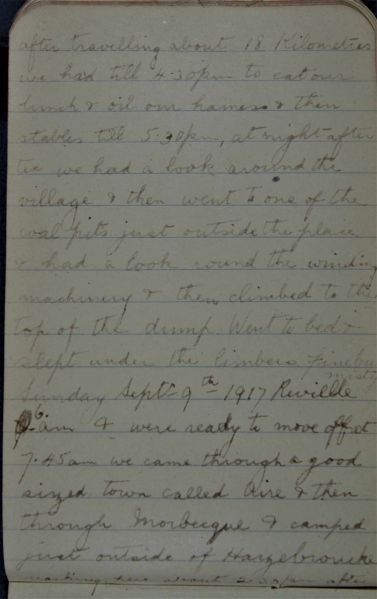 after travelling about 18 Kilometres
we had till 4.30pm to eat our
lunch & oil our harness & then
stables till 5.30pm, at night after
tea we had a look around the
village & then went to one of the
coal pits just outside the place
& had a look round the winding
machinery & then climbed to the
top of the dump Went to bed &
slept under the limbers fine but
misty
Sunday Sept 9th 1917 Reveille
6 am & were ready to move off at
7.45am we came through a good
sized town called Aire & then
through Morbecque & camped
just outside of Hazebroucke
reaching here about pm after